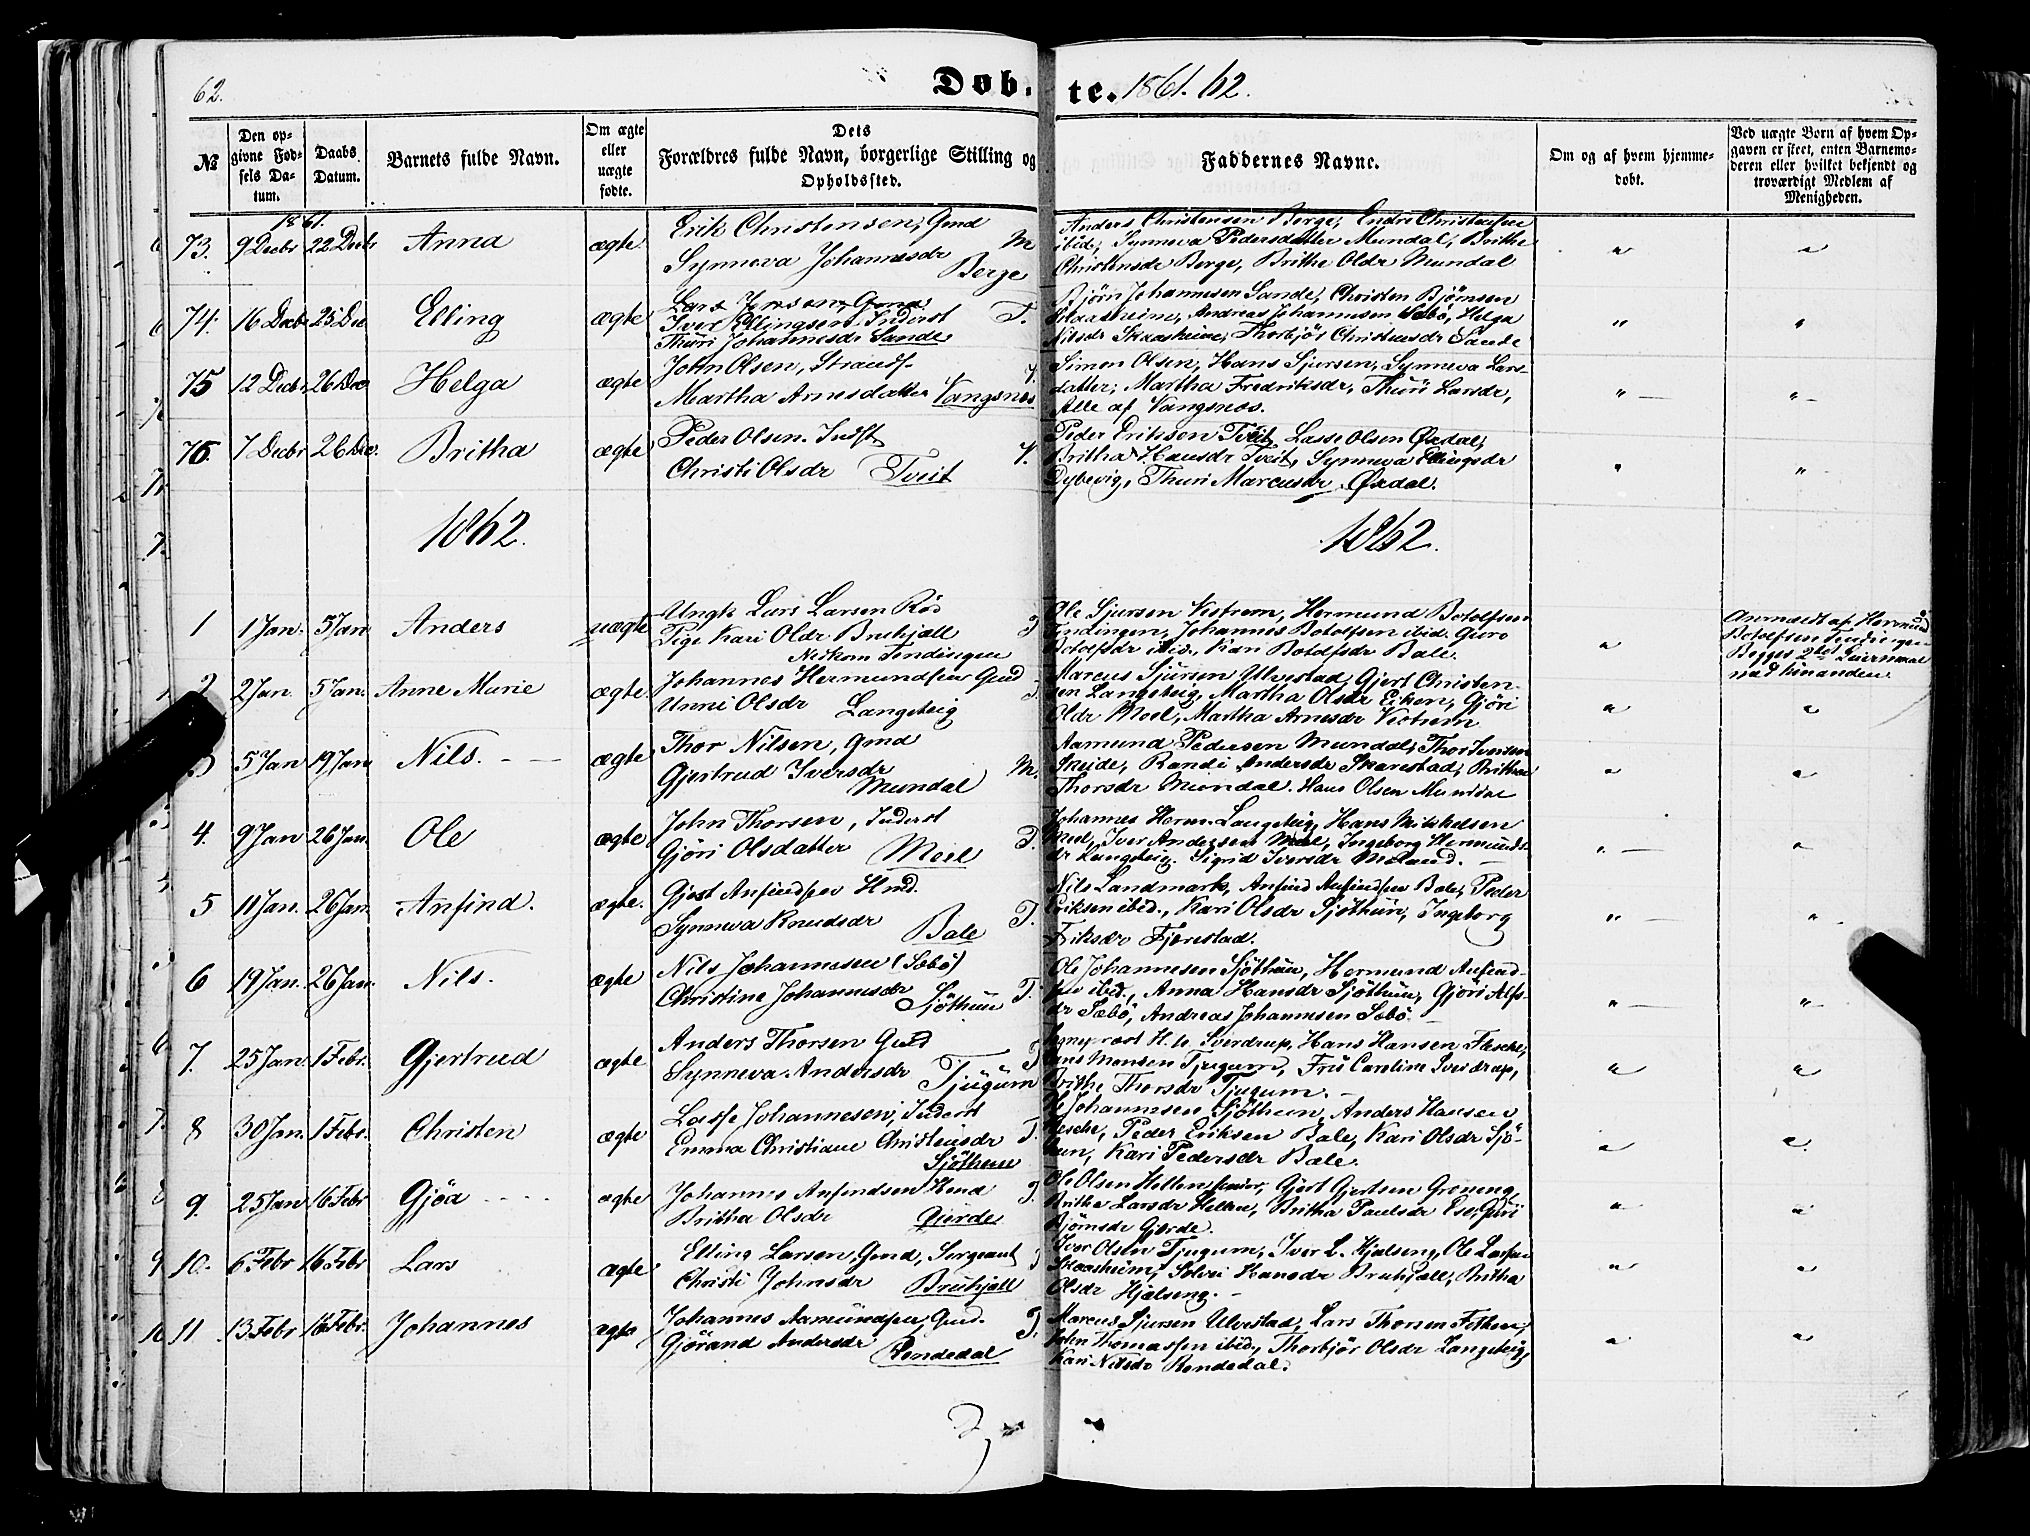 62.
Døb.
te. 1861. 62.
№
Den opgivne Fødsels Datum.
Daabs Datum.
Barnets fulde Navn.
Om ægte eller uægte fødte.
Dets Forældres fulde Navn, borgerlige Stilling og Opholdssted.
Faddernes Navne.
Om og af hvem hjemmedøbt.
Ved uægte Børn af hvem Opgaven er skeet, enten Barnemoderen eller hvilket bekjendt og troværdigt Medlem af Menigheden.
1861.
73. 9 Decbr 22 Decbr Anna ægte.
Erik Christensen, Gmd
Synneva Johannesdr M
Berge
Anders Christensen Berge, Endre Christensen
ibid, Synneva Pedersdatter Mundal, Brithe
Christensdr Berge, Brithe Oldr Mundal
74. 16 Decbr 25 Dec Elling ægte
Iver Ellingsen Inderst T.
Thuri Johannesdr Sande
Bjørn Johannesen Sande, Christen Bjørnsen
Skaasheim, Andreas Johannesen Sæbö, Helga
Nilsdr Skaasheim, Thorbjör Christensdr Sande
75 12 Decbr 26 Dec Helga ægte
John Olsen, Strands.
Martha Arnesdatter Vangsnæs
Simon Olsen, Hans Sjursen, Synneva Lars-
datter, Martha Fredriksdr, Thuri Larsdr,
Alle af Vangsnæs.
76. 7 Decbr 26 Dec. Britha ægte
Peder Olsen. Indst
Christi Olsdr Tveit V.
Peder Eriksen Tveit, Lasse Olsen Øxdal,
Britha Hansdr Tveit, Synneva Ellingsdr
Dybevig, Thuri Marcusdr Øxdal.
1862. 1862.
1 1 Jan. 5 Jan Anders uægte
Ungk. Lars Larsen Röd
Pige Kari Oldr Bruhjell
Nedkom Tendingen
Ole Sjursen Vestrem, Hermund Botolfsen
Tendingen, Johannes Botolfsen ibid. Guro
Botolfsdr ibid, Kari Botolfsdr Bale.
Anmeldt af Hermund
Botolfsen Tendingen
Begges 2det Leiermaal
med hinanden.
2 2 Jan. 5 Jan. Anne Marie ægte.
Johannes Hermundsen Gmd
Unni Olsdr Langeteig
Marcus Sjursen Ulvestad, Gjert Christen-
sen Langeteig, Martha Olsdr Eiken, Gjöri
Oldr Moel, Martha Arnesdr Vestrem
3 5 Jan 19 Jan Nils. ægte
Thor Nilsen, Gmd
Gjertrud Iversdr M.
Mundal
Aamund Pedersen Mundal, Thor Iversen
Skeide, Randi Andersdr Skarestad, Brithe
Thorsdr Mundal. Hans Olsen Mundal
4. 9 Jan 26 Jan. Ole ægte
John Thorsen, Inderst
Gjöri Olsdatter Meel
Johannes Herm. Langeteig, Hans Mikkelsen
Meel, Iver Andersen Meel, Ingeborg Hermunds-
dr Langeteig. Sigrid Iversdr Meelund.
5 11 Jan. 26 Jan. Anfind. ægte.
Gjest Anfindsen Hmd.
Synneva Knudsdr Bale T.
Nils Landmark, Anfind Anfindsen Bale, Peder
Eriksen ibid., Kari Olsdr Sjöthun, Ingeborg
Eriksdr Fjærestad.
6 19 Jan. 26 Jan. Nils. ægte
Nils Johannesen (Sæbö)
Christine Johannesdr Sjöthun T.
Ole Johannesen Sjöthun, Hermund Anfind-
sen ibid., Anna Hansdr Sjöthun, Gjöri Alfs-
dr Sæbö, Andreas Johannesen Sæbö.
7. 25 Jan. 1 Febr. Gjertrud ægte
Anders Thorsen Gmd
Synneva Andersdr Tjugum
Sogneprest H. U. Sverdrup, Hans Hansen Flesche,
Hans Monsen Tjugum, Fru Caroline Sverdrup,
Brithe Thorsdr Tjugum.
8 30 Jan. 1 Febr. Christen ægte
Lasse Johannesen, Inderst
Emma Christiane Christensdr T.
Sjöthun
Ole Johannesen Sjöthun, Anders Hansen
Flesche, Peder Eriksen Bale, Kari Olsdr Sjö-
thun, Kari Pedersdr Bale.
9. 25 Jan 16 Febr Gjöa ægte
Johannes Anfindsen Hmd
Britha Olsdr Gjerde
Ole Olsen Hellen senior, Gjert Gjertsen Gröneng,
Brithe Larsdr Hellen, Britha Paulsdr Ese, Guri
Bjørnsdr Gjerde.
10. 6 Febr 16 Febr Lars ægte
Elling Larsen, Gmd, Sergeant
Christi Johnsdr Bruhjell
Iver Olsen Tjugum, Iver L. Hjelseng, Ole Larsen
Skaasheim, Solvei Hansdr Bruhjell, Britha
Olsdr Hjelseng.
11 13. Febr 16 Febr. Johannes ægte
Johannes Aamundsen, Gmd.
Gjörand Andersdr Rendedal
Marcus Sjursen Ulvestad, Lars Thorsen Fethen,
John Thomassen ibid, Thorbjör Olsdr Langeteig,
Kari Nilsdr Rendedal.